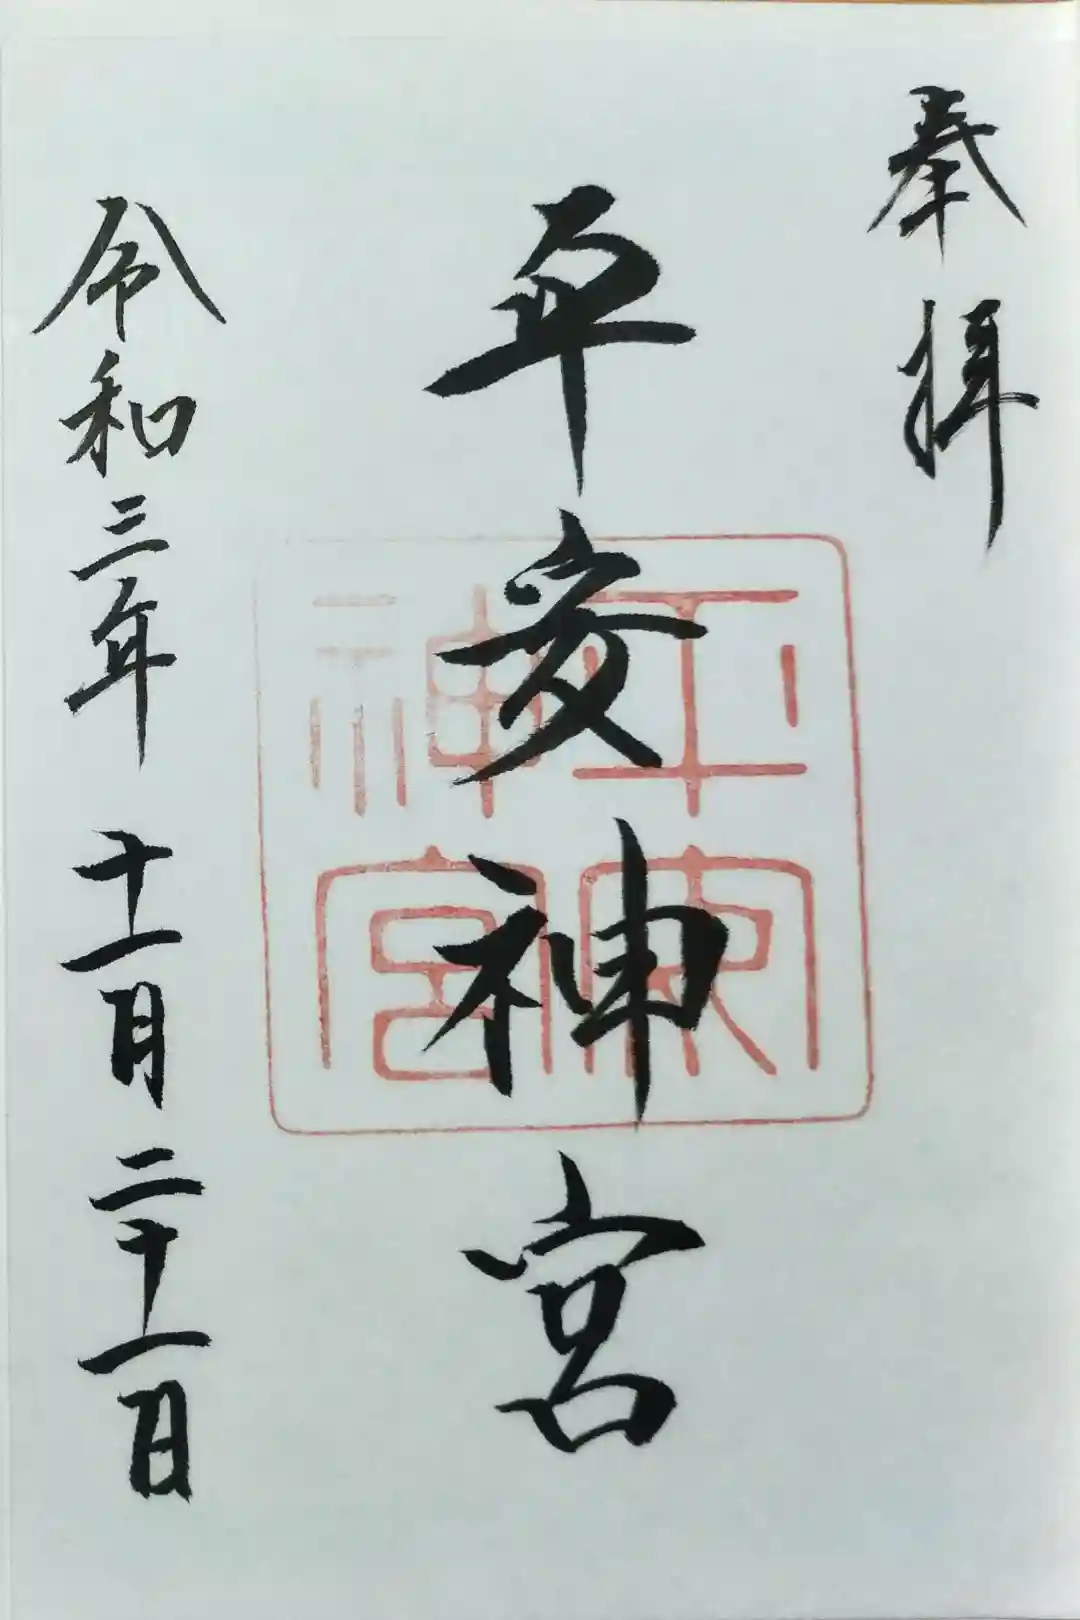 奉拝
平安神宮
平安神宮
令和三年十一月二十一日